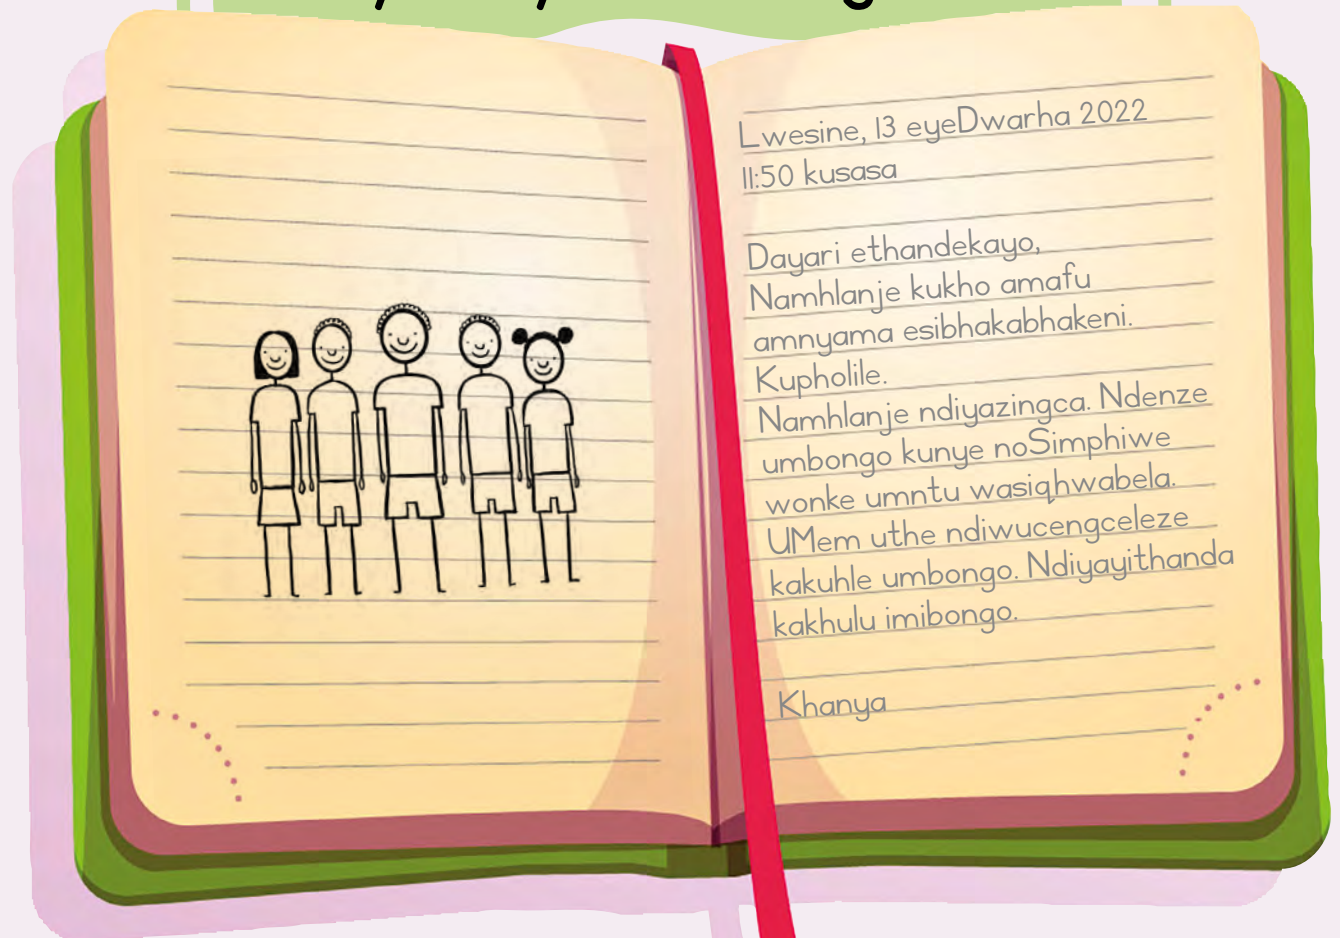 Lwesine, 13 eyeDwarha 2022
11:50 kusasa
Dayari ethandekayo,
Namhlanje kukho amafu
amnyama esibhakabhakeni.
Kupholile.
Namhlanje ndiyazingca. Ndenze
umbongo kunye noSimphiwe
wonke umntu wasiqhwabela.
UMem uthe ndiwucengceleze
kakuhle umbongo. Ndiyayithanda
kakhulu imibongo.
Khanya